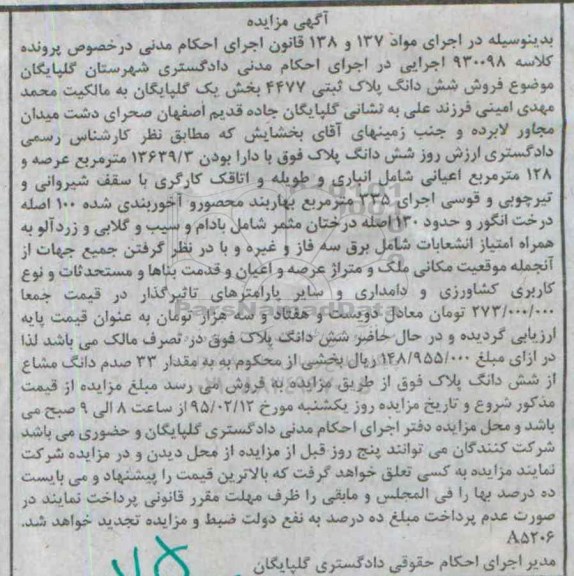 آگهی مزایده
بدینوسیله در اجرای مواد ۱۳۷ و ۱۳۸ قانون اجرای احکام مدنی درخصوص پرونده
کلاسه ۹۳۰۰۹۸ اجرایی در اجرای احکام مدنی دادگستری شهرستان گلپایگان
موضوع فروش شش دانگ پلاک ثبتی ۴۴۷۷ بخش یک گلپایگان به مالکیت محمد
مهدی امینی فرزند علی به نشانی گلپایگان جاده قدیم اصفهان صحرای دشت میدان
مجاور لابرده و جنب زمینهای آقای بخشایش که مطابق نظر کارشناس رسمی
دادگستری ارزش روز شش دانگ پلاک فوق با دارا بودن ۱۳۶۳۹/۳ مترمربع عرصه و
۱۲۸ مترمربع اعیانی شامل انباری و طویله و اتاقک کارگری با سقف شیروانی و
تیرچوبی و قوسی اجرای ۲۳۵ مترمربع بهاربند محصورو آخوربندی شده ۱۰۰ اصله
درخت انگور و حدود ۱۳۰اصله درختان مثمر شامل بادام و سیب و گلابی و زردآلو به
همراه امتیاز انشعابات شامل برق سه فاز و غیره و با در نظر گرفتن جمیع جهات از
آنجمله موقعیت مکانی ملک و متراژ عرصه و اعیان و قدمت بناها و مستحدثات و نوع
کاربری کشاورزی و دامداری و سایر پارامترهای تاثیرگذار در قیمت جمعا
۲۷۳/۰۰۰/۰۰۰ تومان معادل دویست و هفتاد و سه هزار تومان به عنوان قیمت پایه
ارزیابی گردیده و در حال حاضر شش دانگ پلاک فوق در تصرف مالک می باشد لذا
در ازای مبلغ ۱۴۸/۹۵۵/۰۰۰ ریال بخشی از محکوم به به مقدار ۳۳ صدم دانگ مشاع
از شش دانگ پلاک فوق از طریق مزایده به فروش می رسد مبلغ مزایده از قیمت
مذکور شروع و تاریخ مزایده روز یکشنبه مورخ ۹۵/۰۲/۱۲ از ساعت ۸ الی ۹ صبح می
باشد و محل مزایده دفتر اجرای احکام مدنی دادگستری گلپایگان و حضوری می باشد
شرکت کنندگان می توانند پنج روز قبل از مزایده از محل دیدن و در مزایده شرکت
نمایند مزایده به کسی تعلق خواهد گرفت که بالاترین قیمت را پیشنهاد و می بایست
ده درصد بها را فی المجلس و مابقی را ظرف مهلت مقرر قانونی پرداخت نمایند در
صورت عدم پرداخت مبلغ ده درصد به نفع دولت ضبط و مزایده تجدید خواهد شد.
A۵۲۰۶
مدیر اجرای احکام حقوقی دادگستری گلپایگان